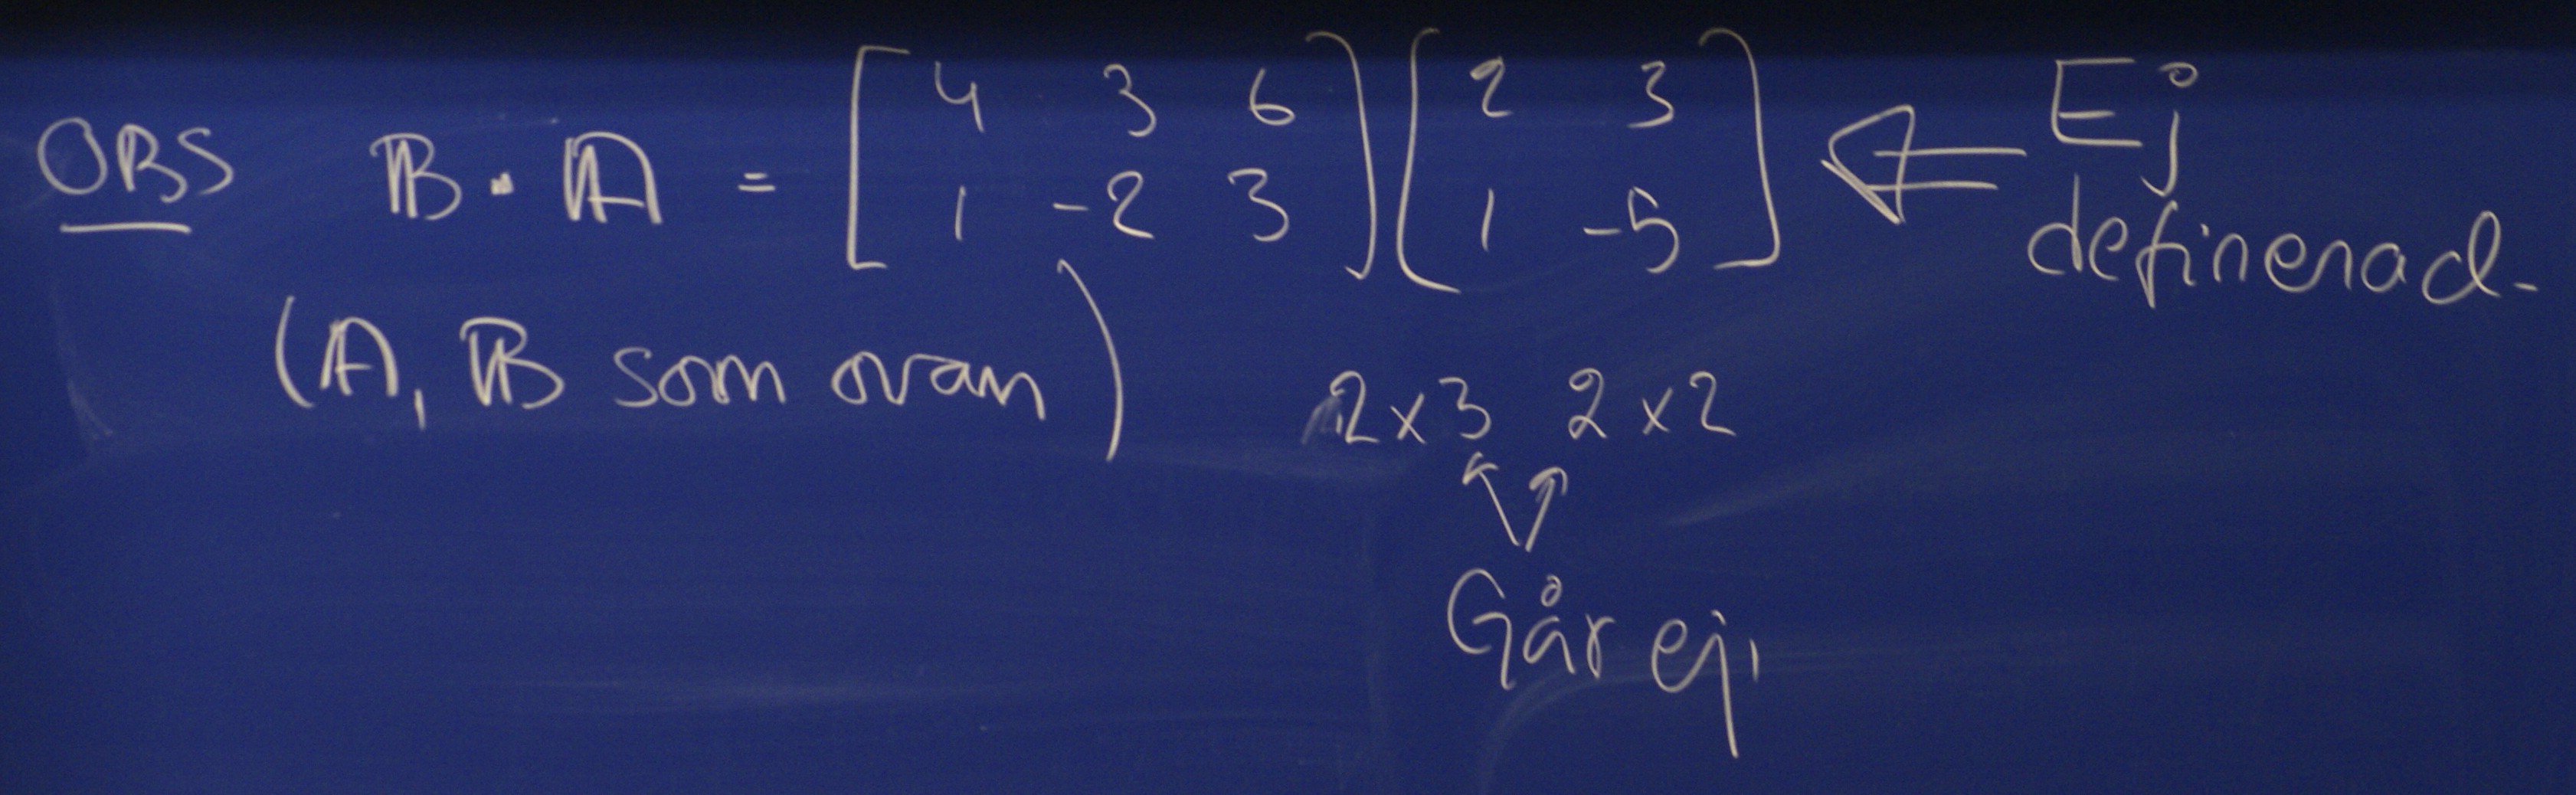 OBS B · A = [ 4 3 6 ] [ 2 3 ] ⇐ Ej
1 -2 3 1 -5 definerad.
(A, B som ovan)
2×3 2×2
Går ej,